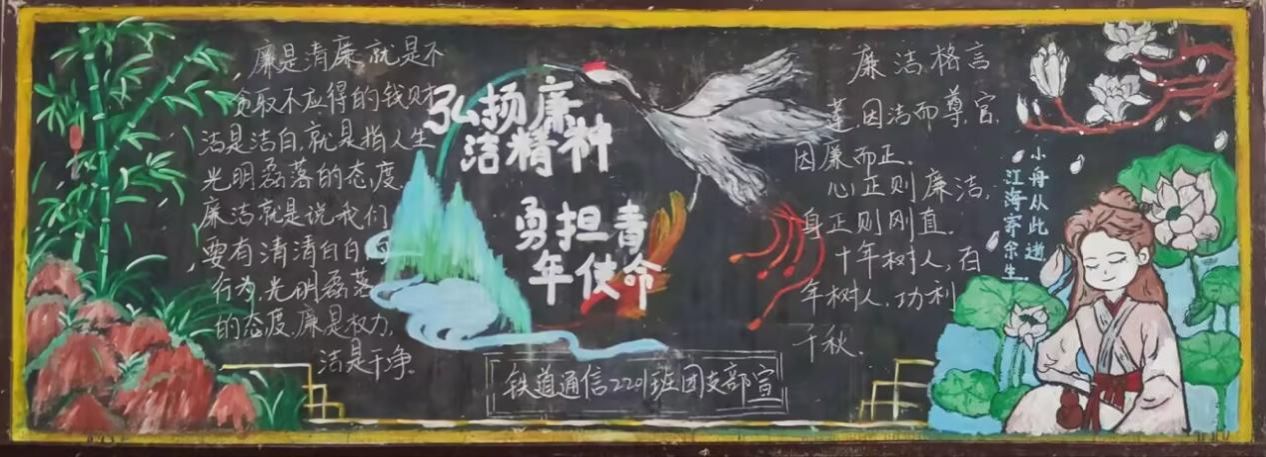 廉是清廉就是不
贪取不应得的钱财
洁是洁白,就是指人生
光明磊落的态度.
廉洁就是说我们
要有清清白白的
行为,光明磊落
的态度,廉是权力,
洁是干净。
弘扬廉
洁精神
勇担青
年使命
铁道通信2201班团支部宣
廉洁格言
莲因洁而尊,官
因廉而正.
心正则廉洁,
身正则刚直.
十年树人,百
年树人,功利
千秋.
小舟从此逝
江海寄余生